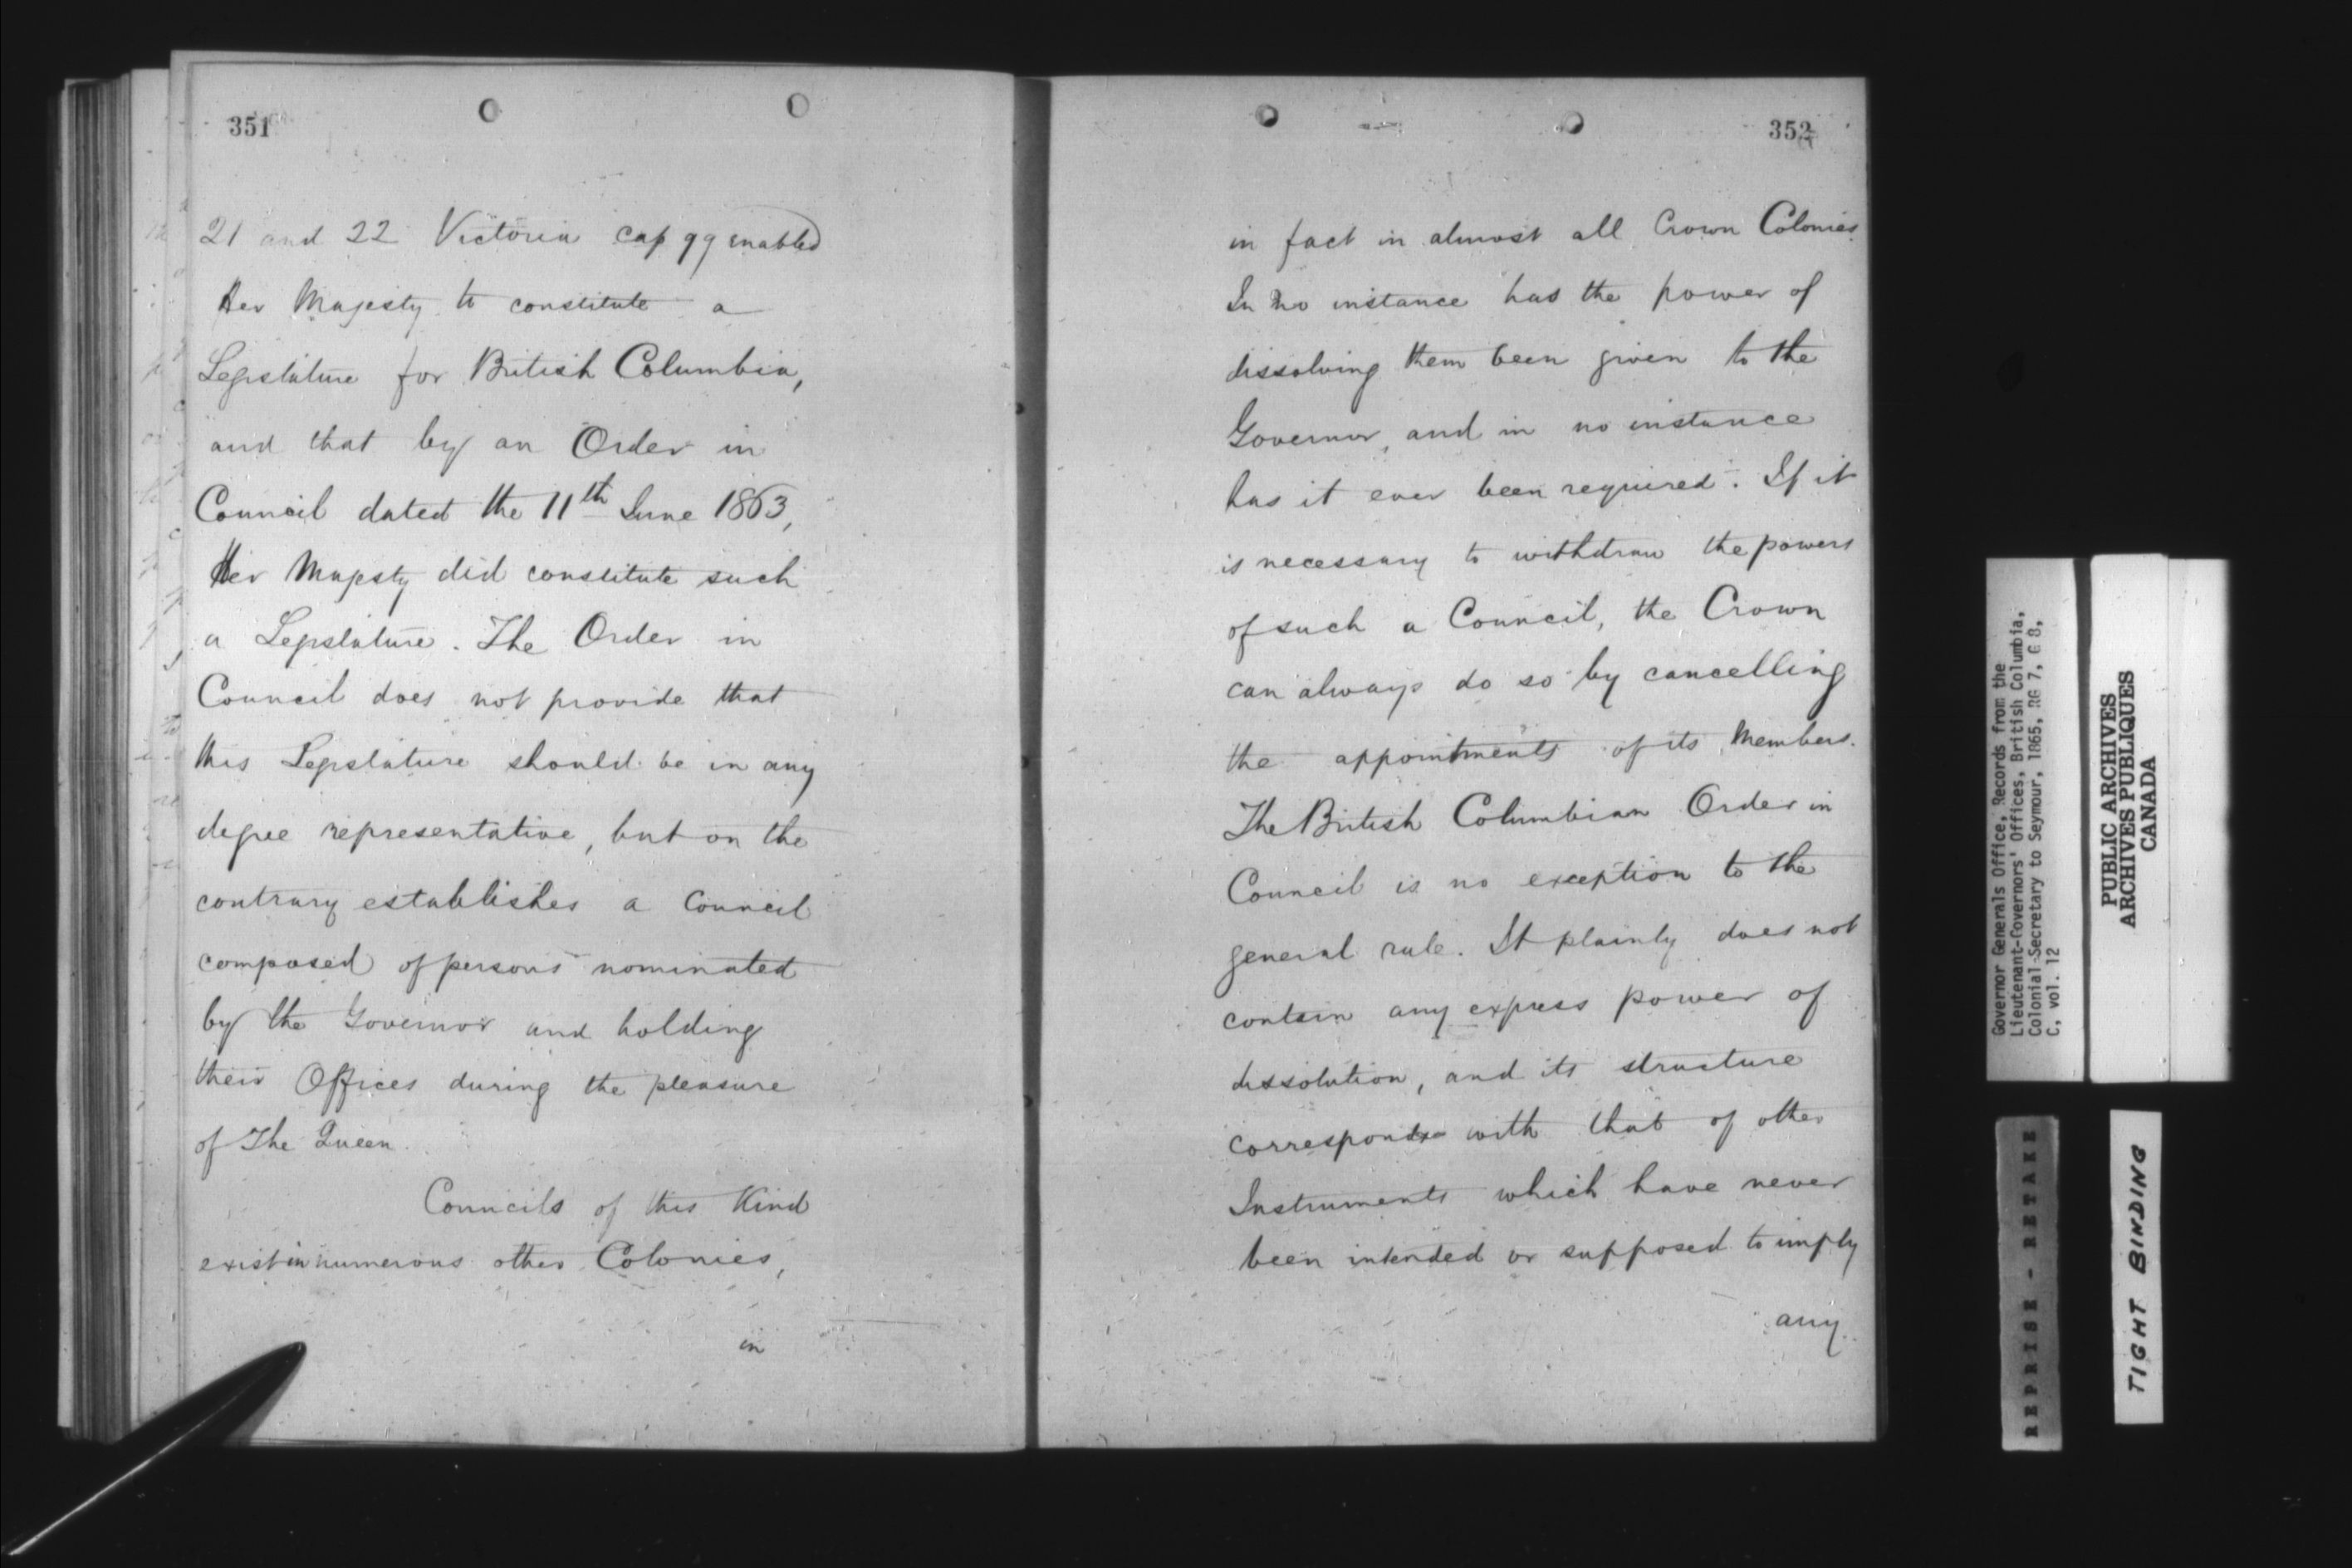 351
21 and 22 Victoria cap 99 enabled
Her Majesty to constitute a
Legislature for British Columbia,
and that by an Order in
Council dated the 11th June 1863,
Her Majesty did constitute such
a Legislature. The Order in
Council does not provide that
this Legislature should be in any
degree representative, but on the
contrary establishes a Council
composed of persons nominated
by the Governor and holding
their Offices during the pleasure
of The Queen.
Councils of this Kind
exist in numerous other Colonies,
in
352
in fact in almost all Crown Colonies.
In no instance has the power of
dissolving them been given to the
Governor, and in no instance
has it ever been required. If it
is necessary to withdraw the powers
of such a Council, the Crown
can always do so by cancelling
the appointments of its Members.
The British Columbian Order in
Council is no exception to the
general rule. It plainly does not
contain any express power of
dissolution, and its structure
corresponds with that of other
Instruments which have never
been intended or supposed to imply
any
Governor Generals Office, Records from the
Lieutenant-Governors' Offices, British Columbia,
Colonial Secretary to Seymour, 1865, RG 7, G 8,
C, vol. 12
PUBLIC ARCHIVES
ARCHIVES PUBLIQUES
CANADA
REPRISE - RETAKE
TIGHT BINDING